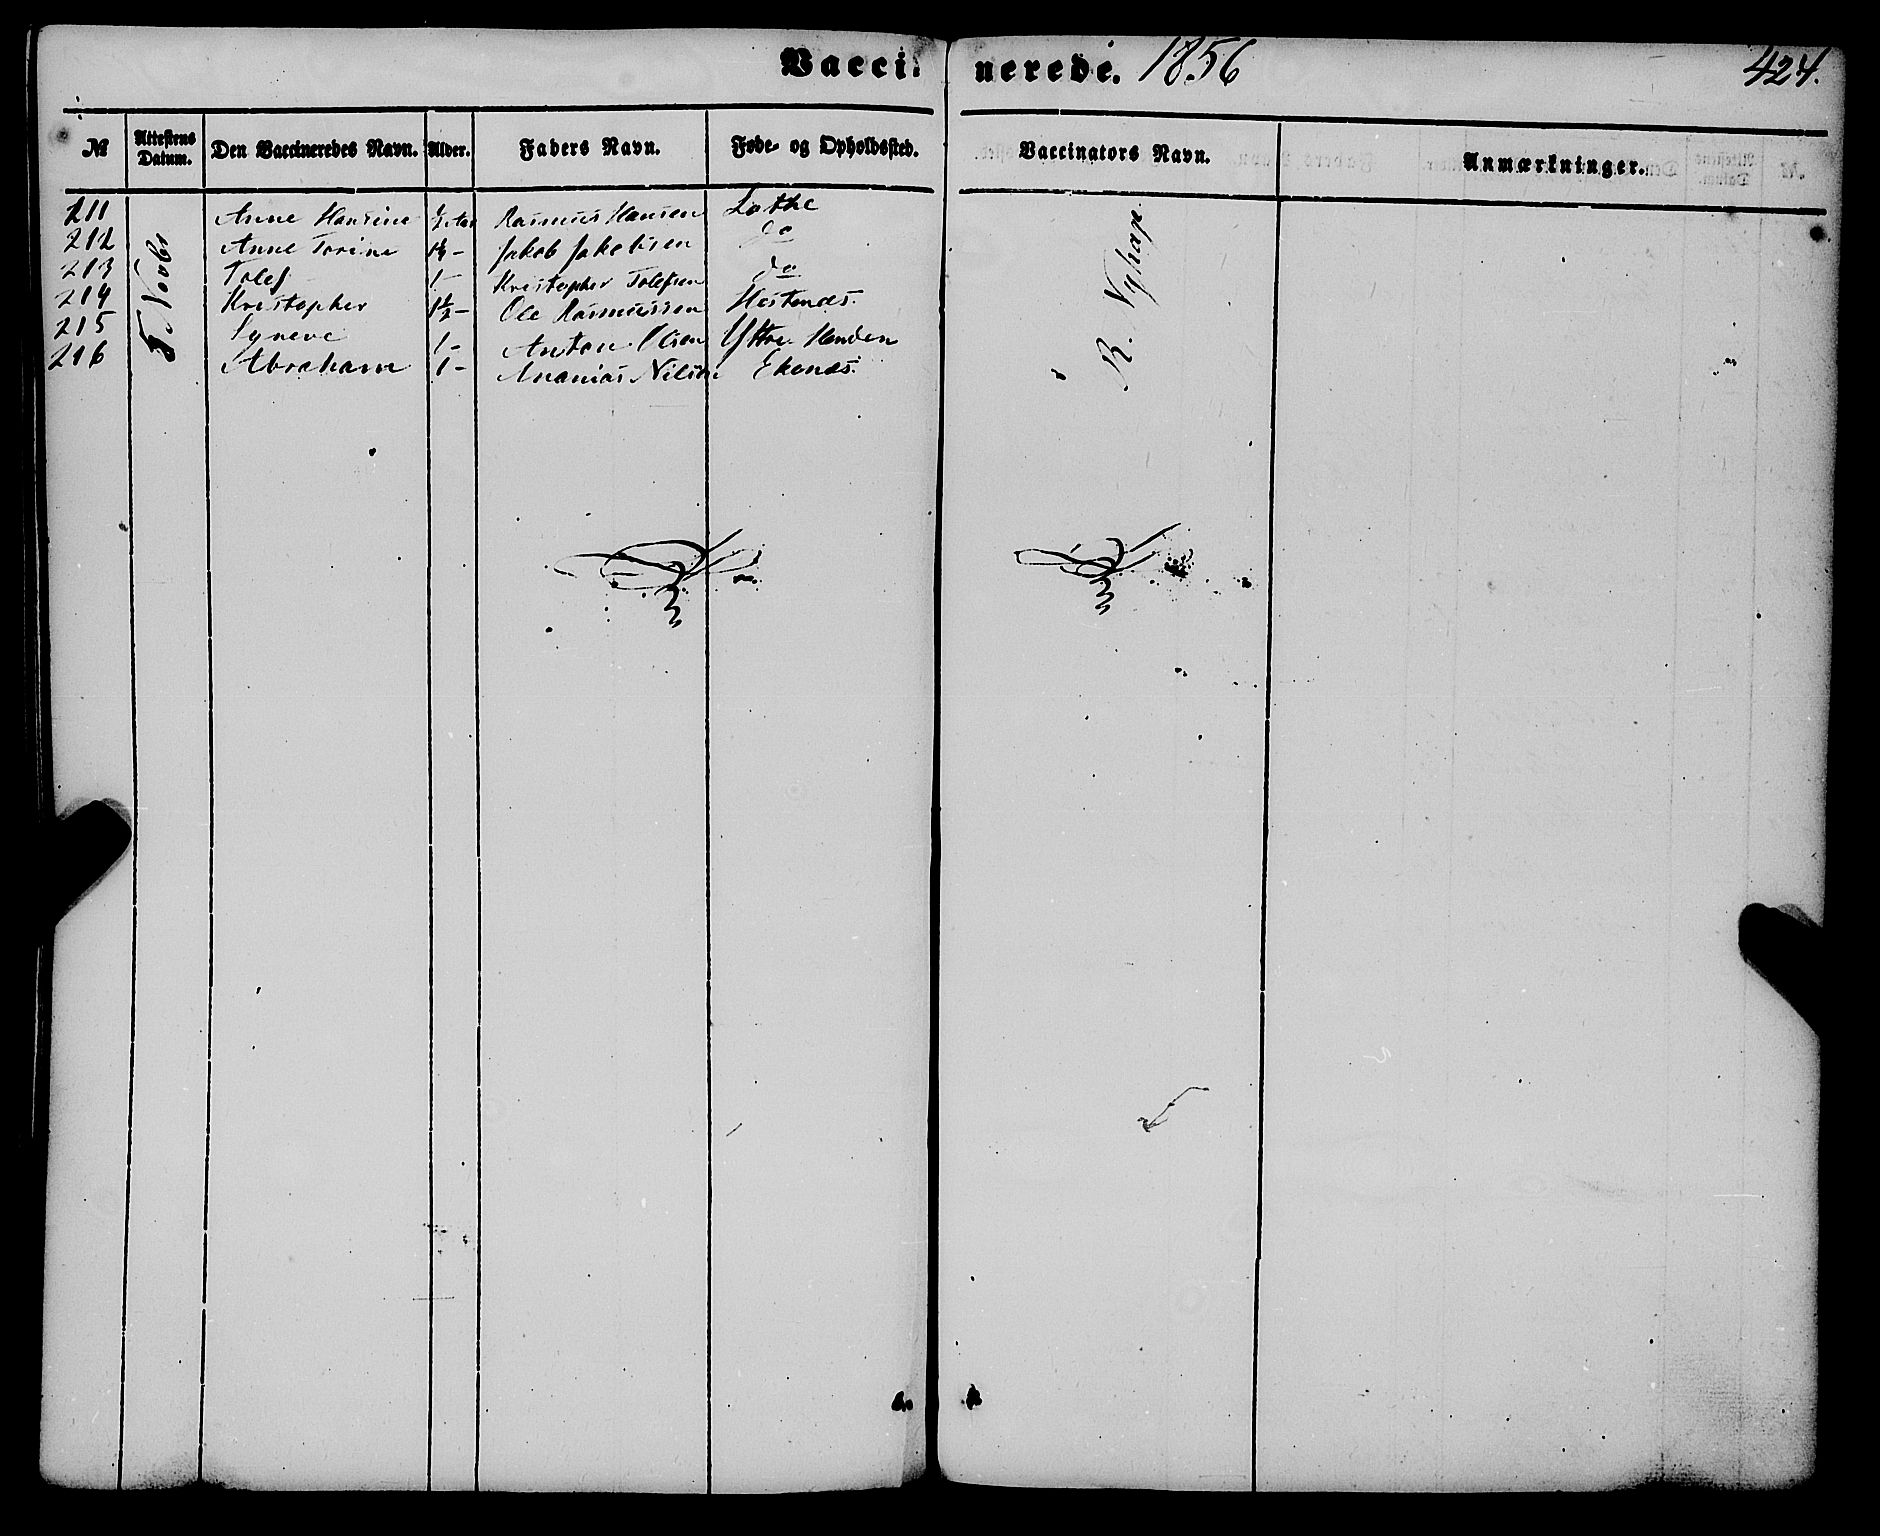 Vaccinerede. 1856
424.
№ Attestens Datum. Den Vaccineredes Navn. Alder. Faders Navn. Føde- og Opholdssted. Vaccinators Navn. Anmærkninger.
211 Anne Hansine ½ Aar Rasmus Hansen Lothe
212 Anne Torine 1½ - Jakob Jakobsen do
213 Tolef 1 - Kristopher Tolefsen do
214 Kristopher 1½ - Ole Rasmussen Hestenæs.
215 Syneve 1 - Anton Olsen Yttre Henden
216 Abraham 1 - Ananias Nilsen Ekenæs.
5 Novbr
R. Nyhap